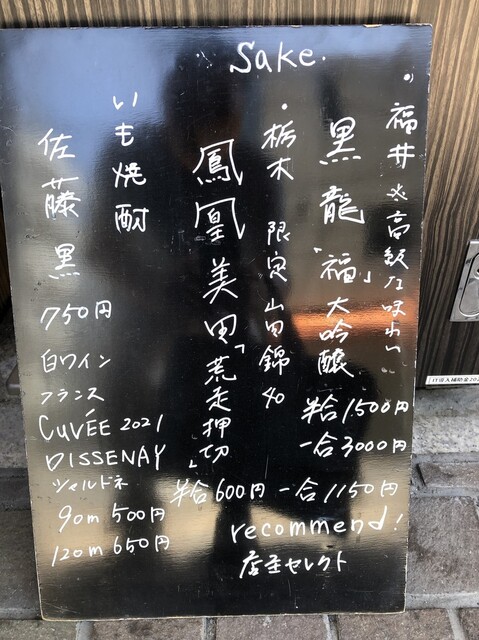 Sake.
・福井 ※高級な味わい
黒龍「福」大吟醸
半合1500円
一合3000円
・栃木 限定 山田錦40
鳳凰美田「荒走押切」
半合600円 一合1150円
recommend!
店主セレクト
いも焼酎
佐藤 黒
750円
白ワイン
フランス
CUVÉE 2021
DISSENAY
シャルドネ
90m 500円
120m 650円